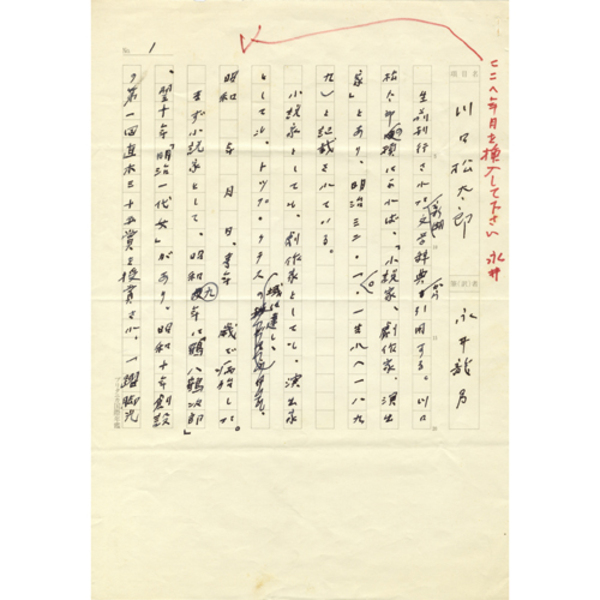 ここへ年月を挿入して下さい 永井
項目名 川口松太郎
筆(訳)者 永井龍男
No. 1
生前刊行された「新潮文学辞典」から引用する。川口
松太郎の項には、「小説家、劇作家、演出
家」とあり、明治三二・一〇・一生れ(一八九
九)と記載されている。
小説家としても、劇作家としても、演出家
としても、トップ・クラスの域に達し、
昭和 年 月 日、享年 歳で病歿した。
まず小説家として、昭和九年に「鶴八鶴次郎」
、翌十年「明治一代女」があり、昭和十年創設
の第一回直木三十五賞を授賞され、一躍脚光